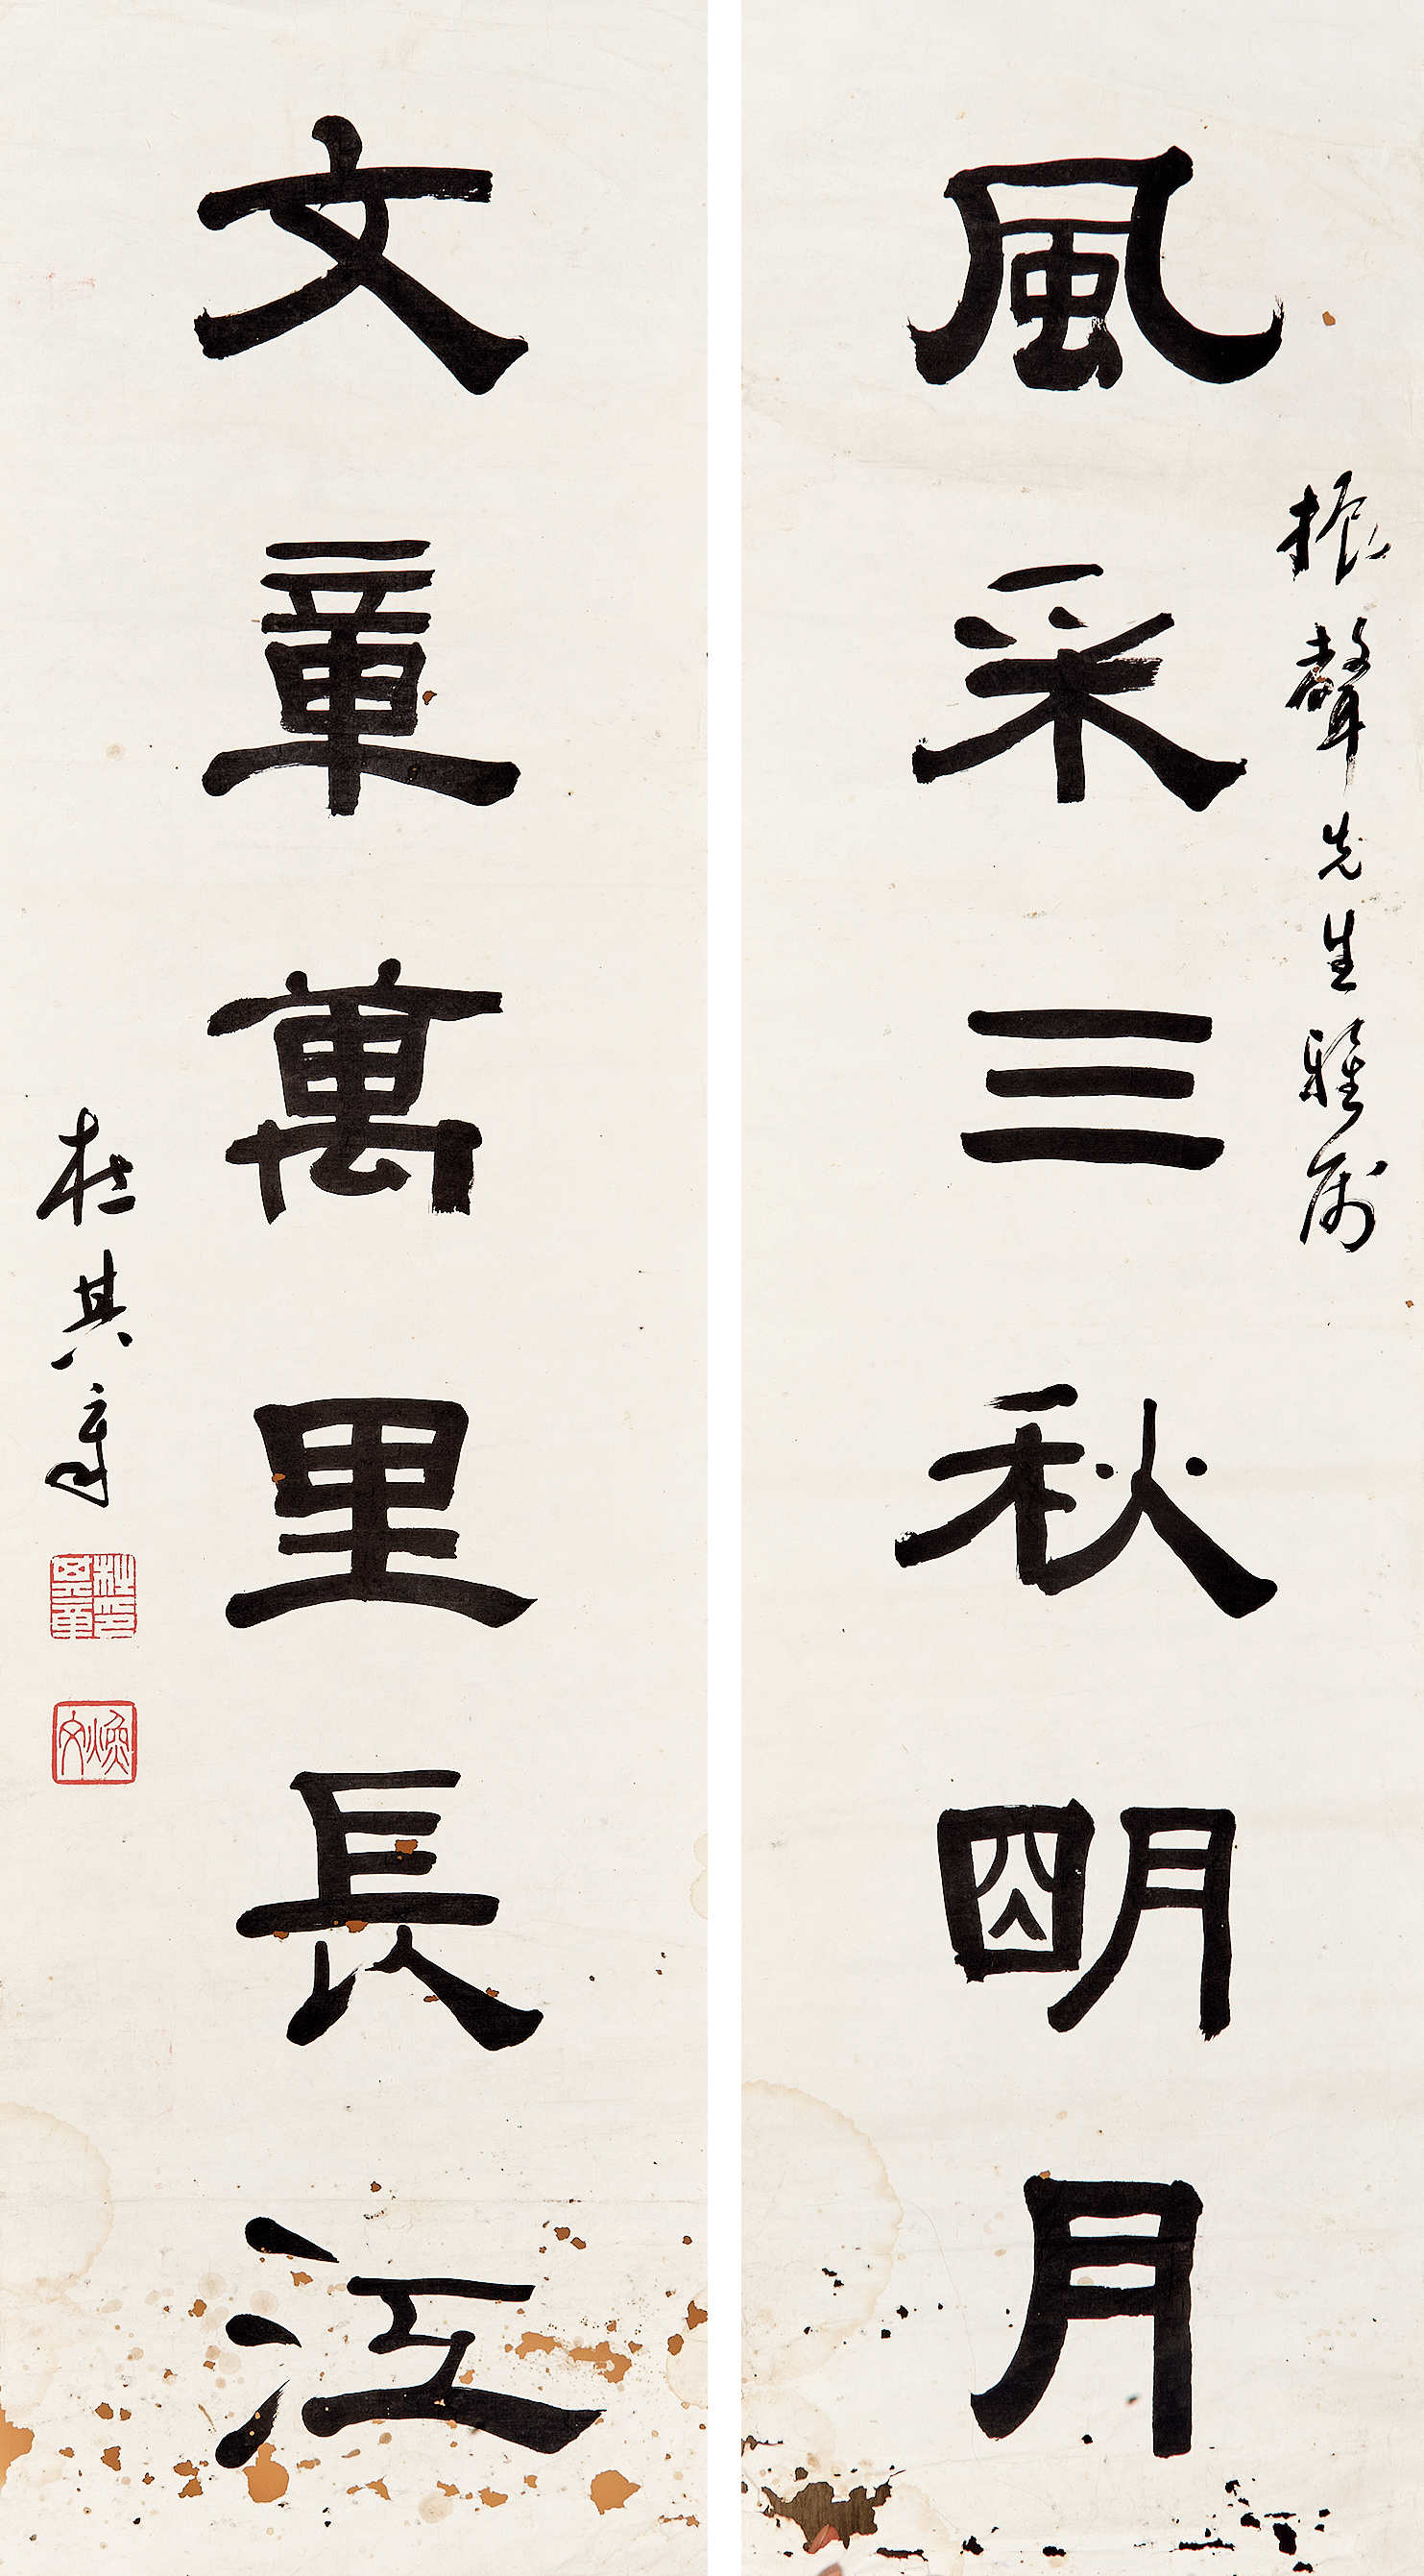 振聲先生雅属
風采三秋朙月
文章萬里長江
杜其章
杜其章印
煥文